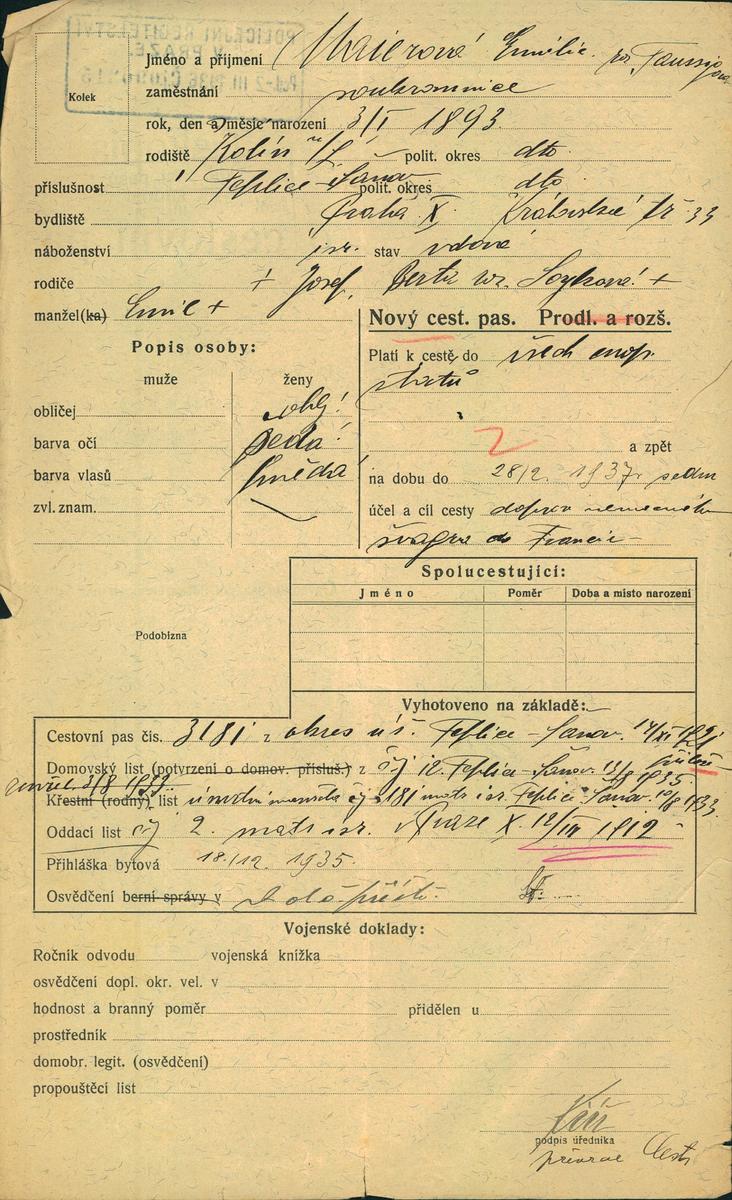 Kolek
Jméno a příjmení Maierová Emilie roz. Taussigová
zaměstnání soukromnice
rok, den a měsíc narození 3/I 1893
rodiště Kolín n/L polit. okres dto
příslušnost Teplice-Šanov polit. okres dto
bydliště Praha X. tř 33
náboženství isr. stav vdova
rodiče + Josef, Berta roz. +
manžel(ka) Emil +
Nový cest. pas. Prodl. a rozš.
Popis osoby:
muže ženy
obličej obl.
barva očí šedá
barva vlasů hnědá
zvl. znam.
Platí k cestě do všech evrop.
států
a zpět
na dobu do 28/2. 1937
účel a cíl cesty doprov nemocného
švagra do Francie
Spolucestující:
Jméno Poměr Doba a místo narození
Podobizna
Vyhotoveno na základě:
Cestovní pas čís. 3181 z okres úř. Teplice-Šanov. 14/XI
Domovský list (potvrzení o domov. přísluš.) z čj 12. Teplice-Šanov. 13/8 1935.
Křestní (rodný) list úmrtní manžela čj 181 matr isr. Teplice Šanov 1933
Oddací list čj 2. matr isr. v Praze X. 12/III 1912
Přihláška bytová 18./12. 1935.
Osvědčení berní správy v
Vojenské doklady:
Ročník odvodu vojenská knížka
osvědčení dopl. okr. vel. v
hodnost a branný poměr přidělen u
prostředník
domobr. legit. (osvědčení)
propouštěcí list
podpis úředníka